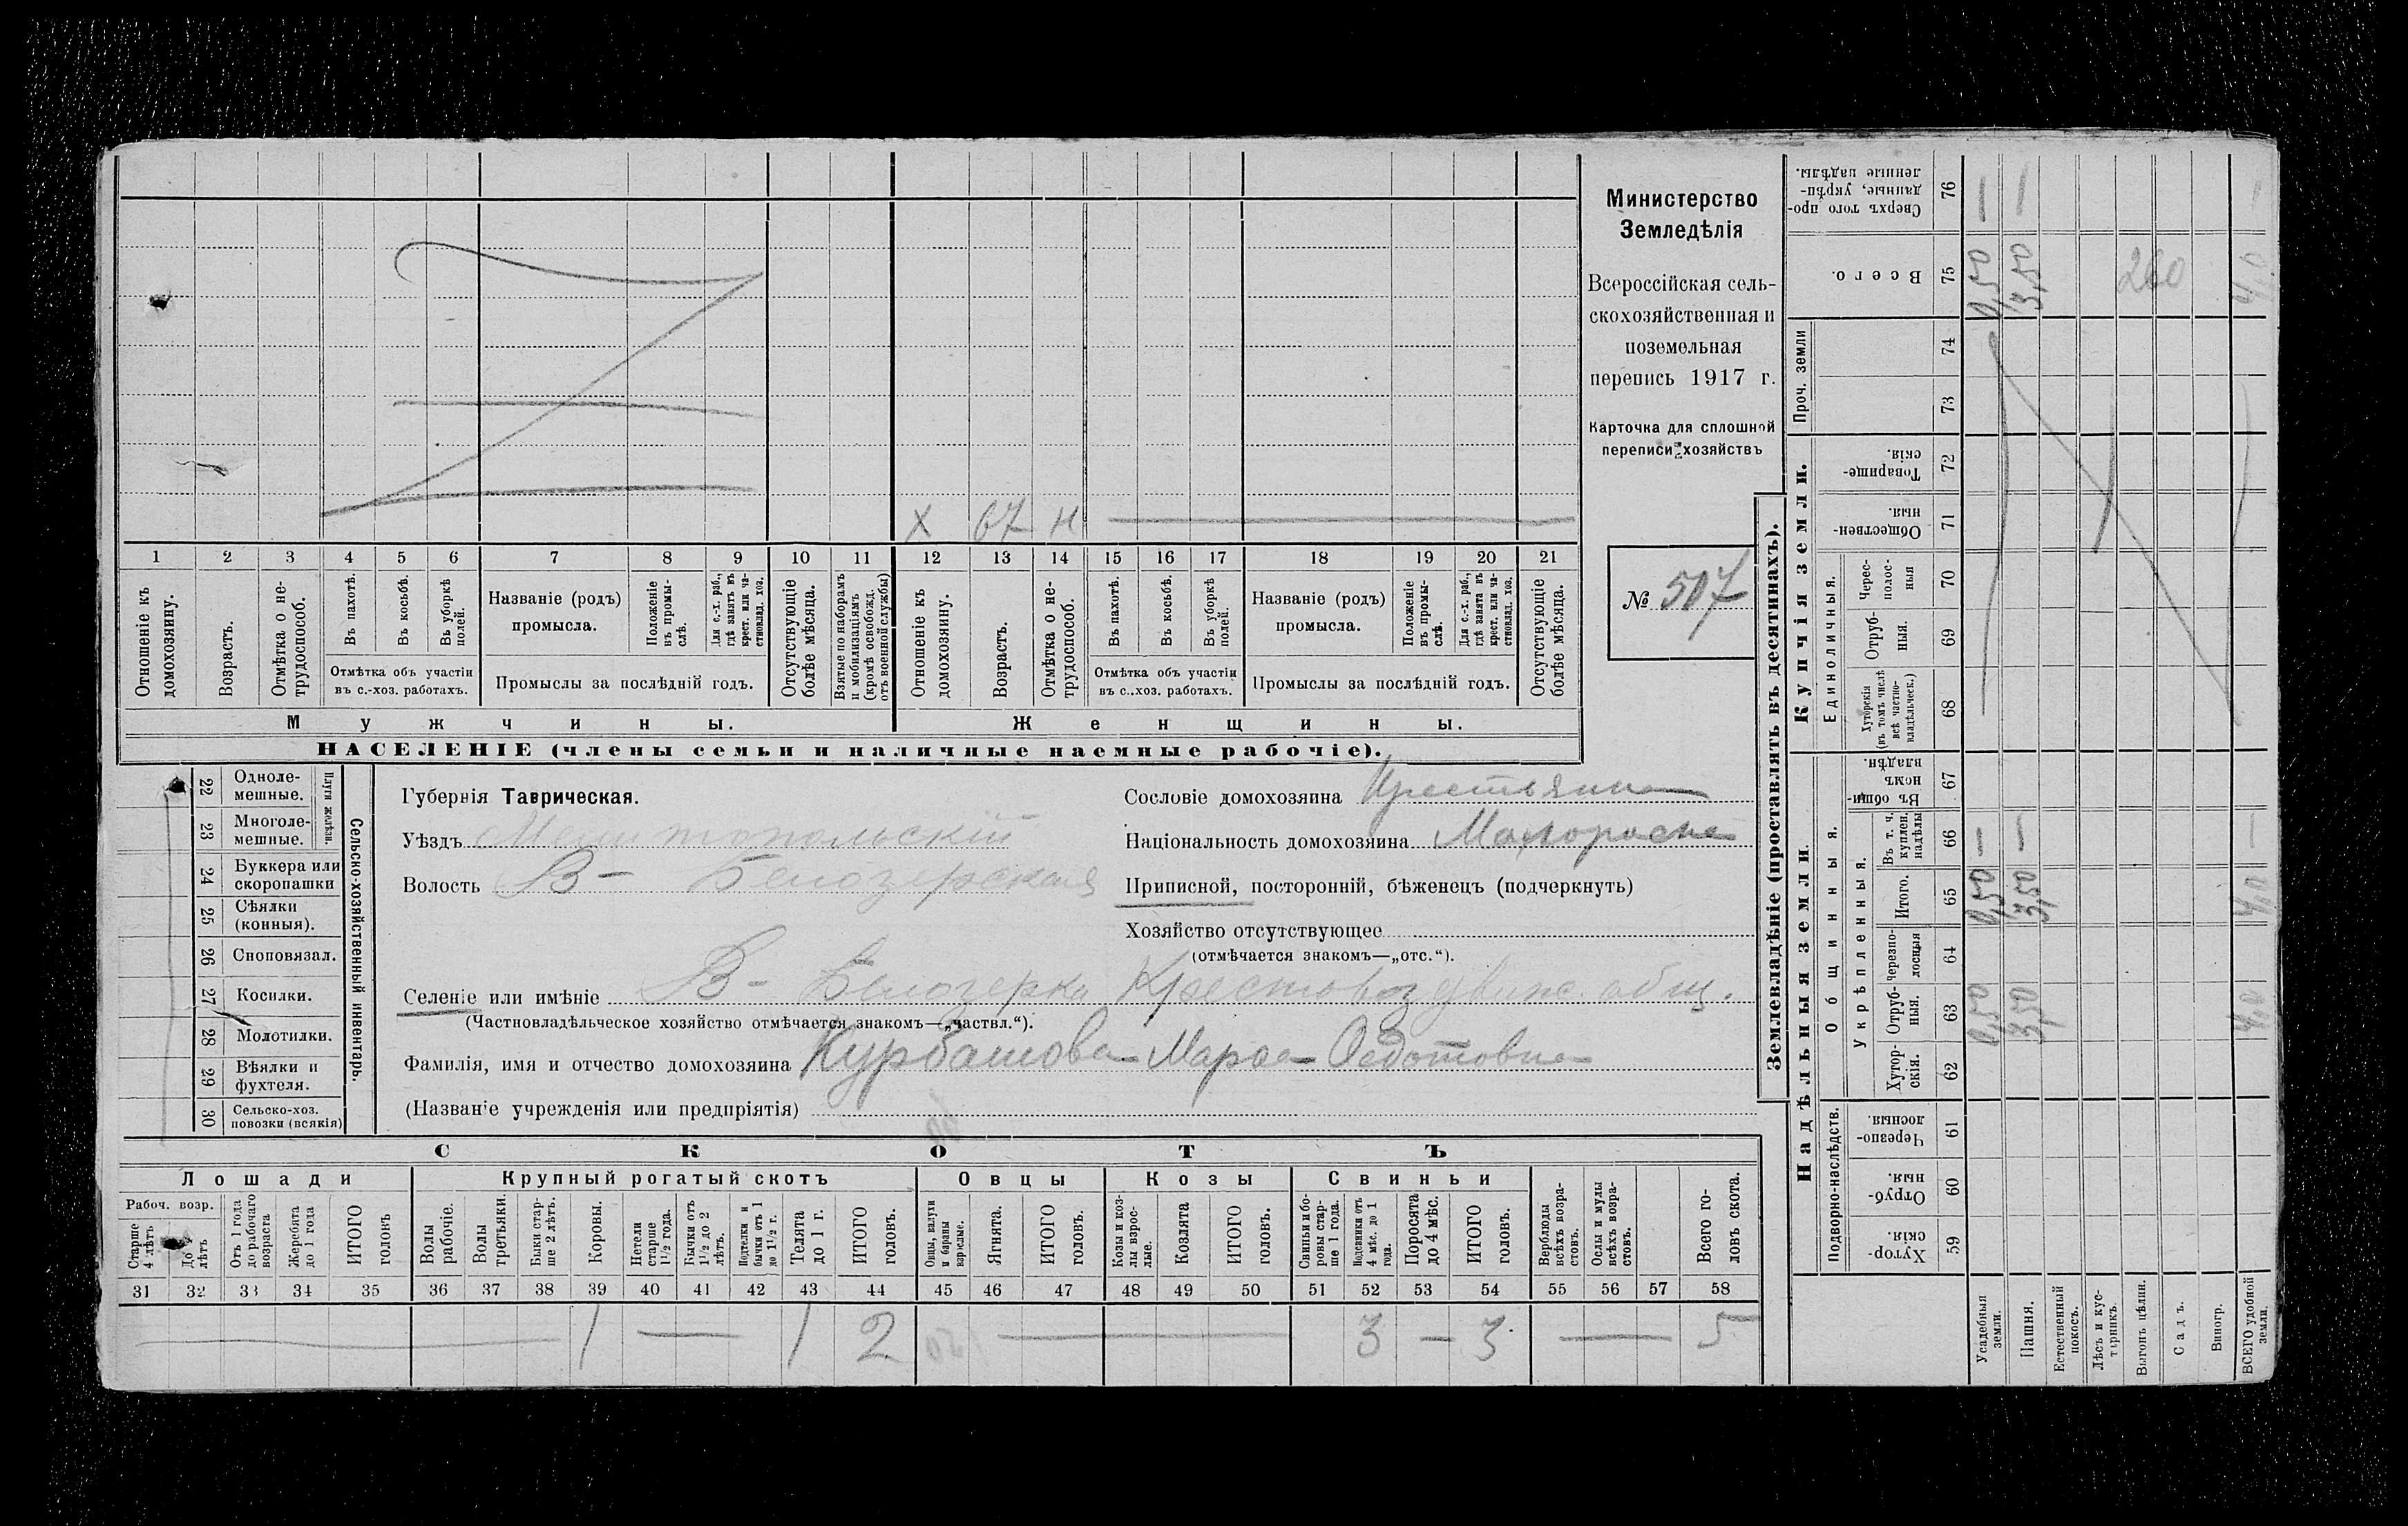 Х 67 Н
1 2 3 4 5 6 7 8 9 10 11 12 13 14 15 16 17 18 19 20 21
Отношеніе къ домохозяину.
Возрастъ.
Отмѣтка о не-
трудоспособ.
Въ пахотѣ.
Въ косьбѣ.
Въ уборкѣ
полей.
Отмѣтка объ участіи
въ с.-хоз. работахъ.
Названіе (родъ)
промысла.
Положеніе
въ промы-
слѣ.
Для с.-х. раб.,
гдѣ занятъ въ
крест. или ча-
стновлад. хоз.
Промыслы за послѣдній годъ.
Отсутствующіе
болѣе мѣсяца.
Взятые по наборамъ
и мобилизаціямъ
(кромѣ освобожд.
отъ военной службы)
Отношеніе къ
домохозяину.
Возрастъ.
Отмѣтка о не-
трудоспособ.
Въ пахотѣ.
Въ косьбѣ.
Въ уборкѣ
полей.
Отмѣтка объ участіи
въ с..хоз. работахъ.
Названіе (родъ)
промысла.
Положеніе
въ промы-
слѣ.
Для с.-х. раб.,
гдѣ занята въ
крест. или ча-
стновлад. хоз.
Промыслы за послѣдній годъ.
Отсутствующіе
болѣе мѣсяца.
Мужчины.
Женщины.
НАСЕЛЕНІЕ (члены семьи и наличные наемные рабочіе).
Министерство
Земледѣлія
Всероссійская сель-
скохозяйственная и
поземельная
перепись 1917 г.
Карточка для сплошной
переписи хозяйствъ
№ 507
22 Одноле-
мешные.
23 Многоле-
мешные.
Плуги желѣзн.
24 Буккера или
скоропашки
25 Сѣялки
(конныя).
26 Сноповязал.
27 Косилки.
28 Молотилки.
29 Вѣялки и
фухтеля.
30 Сельско-хоз.
повозки (всякія)
Сельско-хозяйственный инвентарь.
Губернія Таврическая.
Уѣздъ Мелитопольскій
Волость В- Белозерская
Сословіе домохозяина Крестьянка
Національность домохозяина Малороска
Приписной, посторонній, бѣженецъ (подчеркнуть)
Хозяйство отсутствующее
(отмѣчается знакомъ—„отс.“).
Селеніе или имѣніе В- Белозерка Крестовоздвиж. общ.
(Частновладѣльческое хозяйство отмѣчается знакомъ—„частвл.“).
Фамилія, имя и отчество домохозяина Курбатова Марфа Федотовна
(Названіе учрежденія или предпріятія)
СКОТЪ
Лошади
Крупный рогатый скотъ
Овцы
Козы
Свиньи
Рабоч. возр.
Старше
4 лѣтъ
До
лѣтъ
Отъ 1 года
до рабочаго
возраста
Жеребята
до 1 года
ИТОГО
головъ
Волы
рабочіе.
Волы
третьяки.
Быки стар-
ше 2 лѣтъ.
Коровы.
Нетели
старше
1½ года.
Бычки отъ
1½ до 2
лѣтъ.
Подтелки и
бычки отъ 1
до 1½ г.
Телята
до 1 г.
ИТОГО
головъ.
Овцы, валухи
и бараны
взрослые.
Ягнята.
ИТОГО
головъ.
Козы и коз-
лы взрос-
лые.
Козлята
ИТОГО
головъ.
Свиньи и бо-
ровы стар-
ше 1 года.
Подсвинки отъ
4 мѣс. до 1
года.
Поросята
до 4 мѣс.
ИТОГО
головъ.
Верблюды
всѣхъ возра-
стовъ.
Ослы и мулы
всѣхъ возра-
стовъ.
Всего го-
ловъ скота.
31 32 33 34 35 36 37 38 39 40 41 42 43 44 45 46 47 48 49 50 51 52 53 54 55 56 57 58
— 1 — 1 2 — 3 — 3 — 5
Землевладѣніе (проставлять въ десятинахъ).
Купчія земли.
Надѣльныя земли.
Сверхъ того про-
данные, укрѣп-
ленные надѣлы.
76 — — —
Всего.
75 0,50 3,50 260 4,0
Проч. земли
74
73
Товарище-
скія.
72
Обществен-
ныя.
71
Единоличныя.
Черес-
полос-
ныя
70
Отруб-
ныя.
69
Хуторскія
(въ томъ числѣ
всѣ частно-
владѣльческ.)
68
Общинныя.
Въ общин-
номъ
владѣн.
67
Укрѣпленныя.
Въ т. ч.
куплен.
надѣлы
66 — — —
Итого.
65 0,50 3,50 4,0
Черезпо-
лосныя
64
Отруб-
ныя.
63 0,50 3,50 4,0
Хутор-
скія.
62
Подворно-наслѣдств.
Черезпо-
лосныя
61
Отруб-
ныя.
60
Хутор-
скія.
59
Усадебныя
земли.
Пашня.
Естественный
покосъ.
Лѣсъ и кус-
тарникъ.
Выгонъ цѣлин.
Садъ.
Виногр.
ВСЕГО удобной
земли.